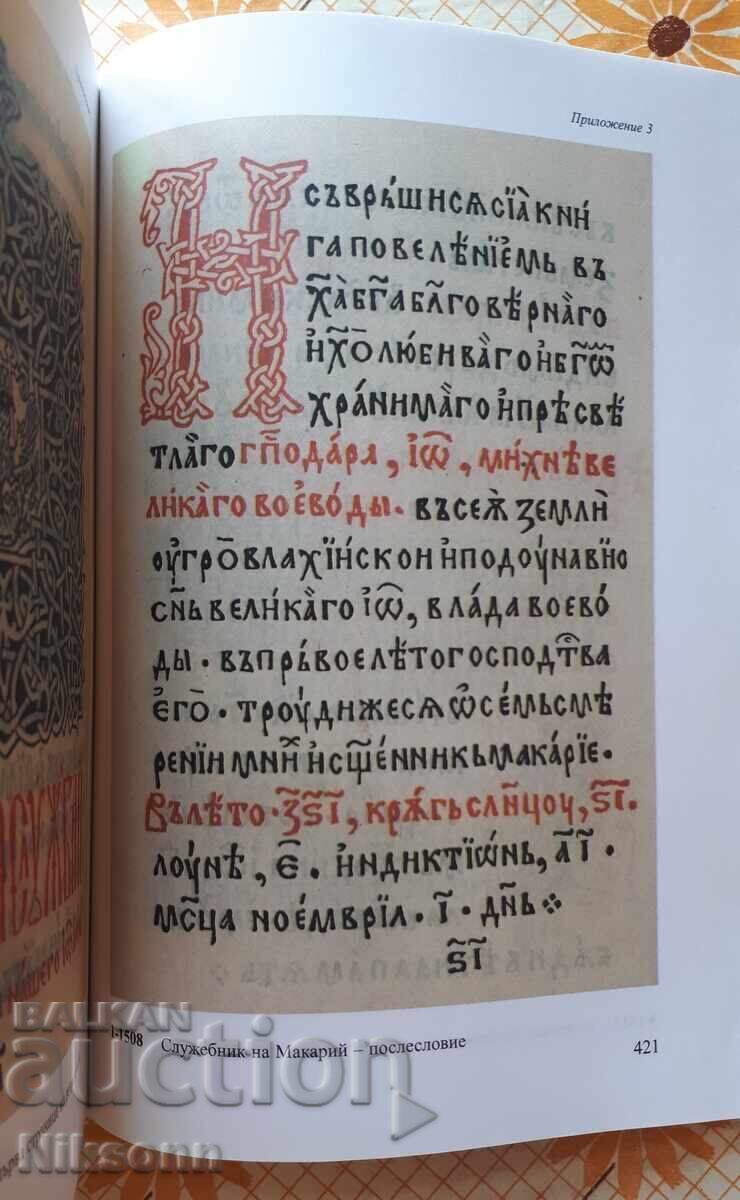 Приложение 3
И
съврьшисѧсїа̀кни́
гаповелѣнїемь въ
х҃а̀б҃габл҃говѣрна̀го
и҆х҃о̑люби́ва̀гои҆б҃гѡ҃м
хра́нима̀гои҆прѣсвѣ
тла̀гог҃пⷭ҇ода́рꙗ, і҆ѡ҃, ми́хнѣве
ли́ка̀говоево́ды. въсеѫ̀ землѝ
оу҆гро̑влахїи́скои и҆подоуна́вїю
с҃нъвели́ка̀го і҆ѡ҃, вла́давоево́
ды · въпрь́воелѣ́тогосподст҃ва
е҆го̑ · троу́дижесѧѡ҆се́мьсмѣ
ре́нїимни́х и҆сщ҃е́нникьмака́рїе.
Въ лѣ́то · ҂з҃ѕ҃і, крѫ́гьсл҃нцоу, ѕ҃і.
лоу́нѣ, е҃. и́ндиктїѡ́нь, а҃і ·
мⷭ҇ца ное́мврїа · і҃ · дн҃ь
ѕ҃і
1-1508 Служебник на Макарий – послесловие
421
BALKAN
auction
Niksonn